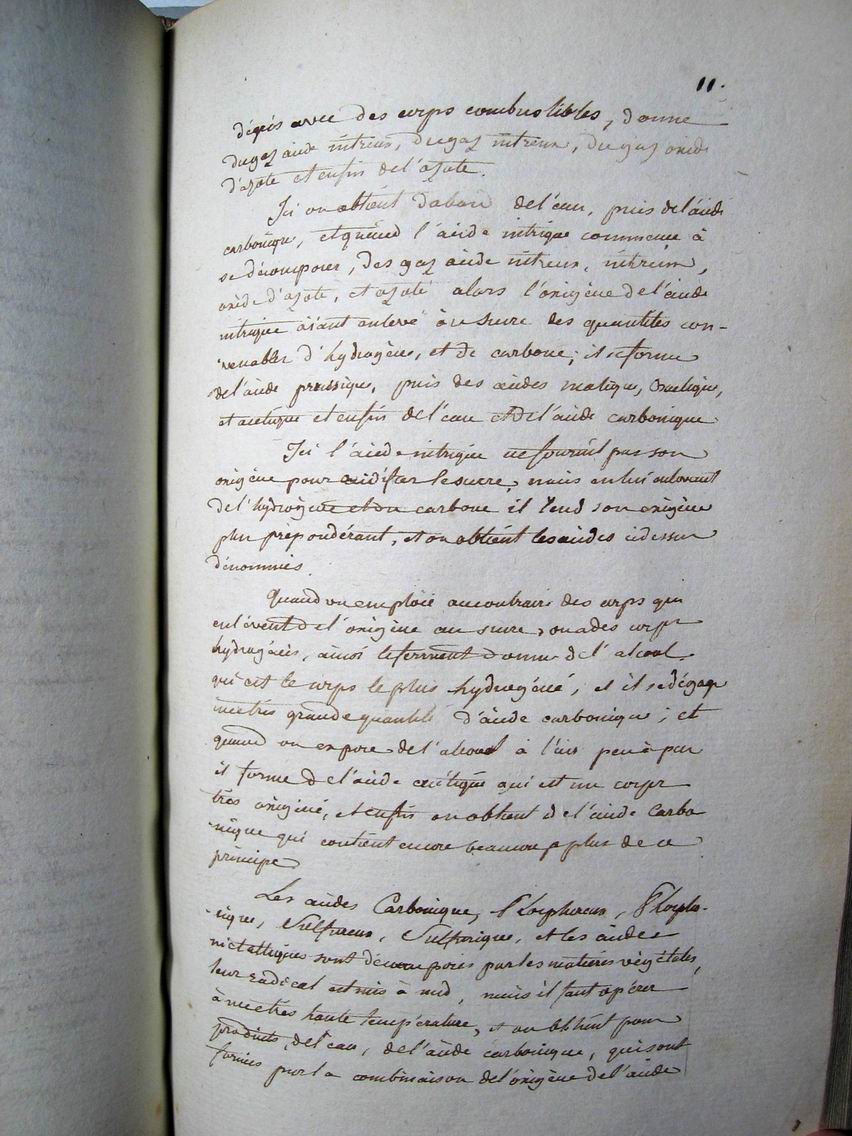 11.
degrés avec des corps combustibles, donne
du gaz acide nitreux, du gaz nitreux, du gaz oxide
d'azote et enfin de l'azote.
Ici on obtient d'abord de l'eau, puis de l'acide
carbonique, et quand l'acide nitrique commence à
se décomposer, des gaz acide nitreux, nitreux,
oxide d'azote, et azote alors l'oxigène de l'acide
nitrique aiant enlevé au sucre des quantités con-
venables d'hydrogène, et de carbone; il se forme
de l'acide prussique, puis des acides malique, oxalique,
et acetique et enfin de l'eau et de l'acide carbonique
Ici l'acide nitrique ne fournit pas son
oxigène pour acidifier le sucre, mais en lui enlevant
de l'hydrogène et du carbone il rend son oxigène
plus prépondérant, et on obtient les acides ci dessus
dénommés.
Quand on emploie au contraire des corps qui
enlèvent de l'oxigène au sucre, ou a des corps
hydrogénés, ainsi le ferment donne de l'alcool
qui est le corps le plus hydrogéné, et il se dégage
une très grande quantité d'acide carbonique; et
quand on expose de l'alcool à l'air peu à peu
il forme de l'acide acétique qui est un corps
très oxigéné, et enfin on obtient de l'acide carbo
nique qui contient encore beaucoup plus de ce
principe
Les acides Carbonique, Phosphoreux, Phospho-
rique, Sulfureux, Sulfurique, et les acides
métalliques sont décomposés par les matières végétales,
leur radical est mis à nud, mais il faut opérer
à une très haute température, et on obtient pour
produits, de l'eau, de l'acide carbonique, qui sont
formés par la combinaison de l'oxigène de l'acide